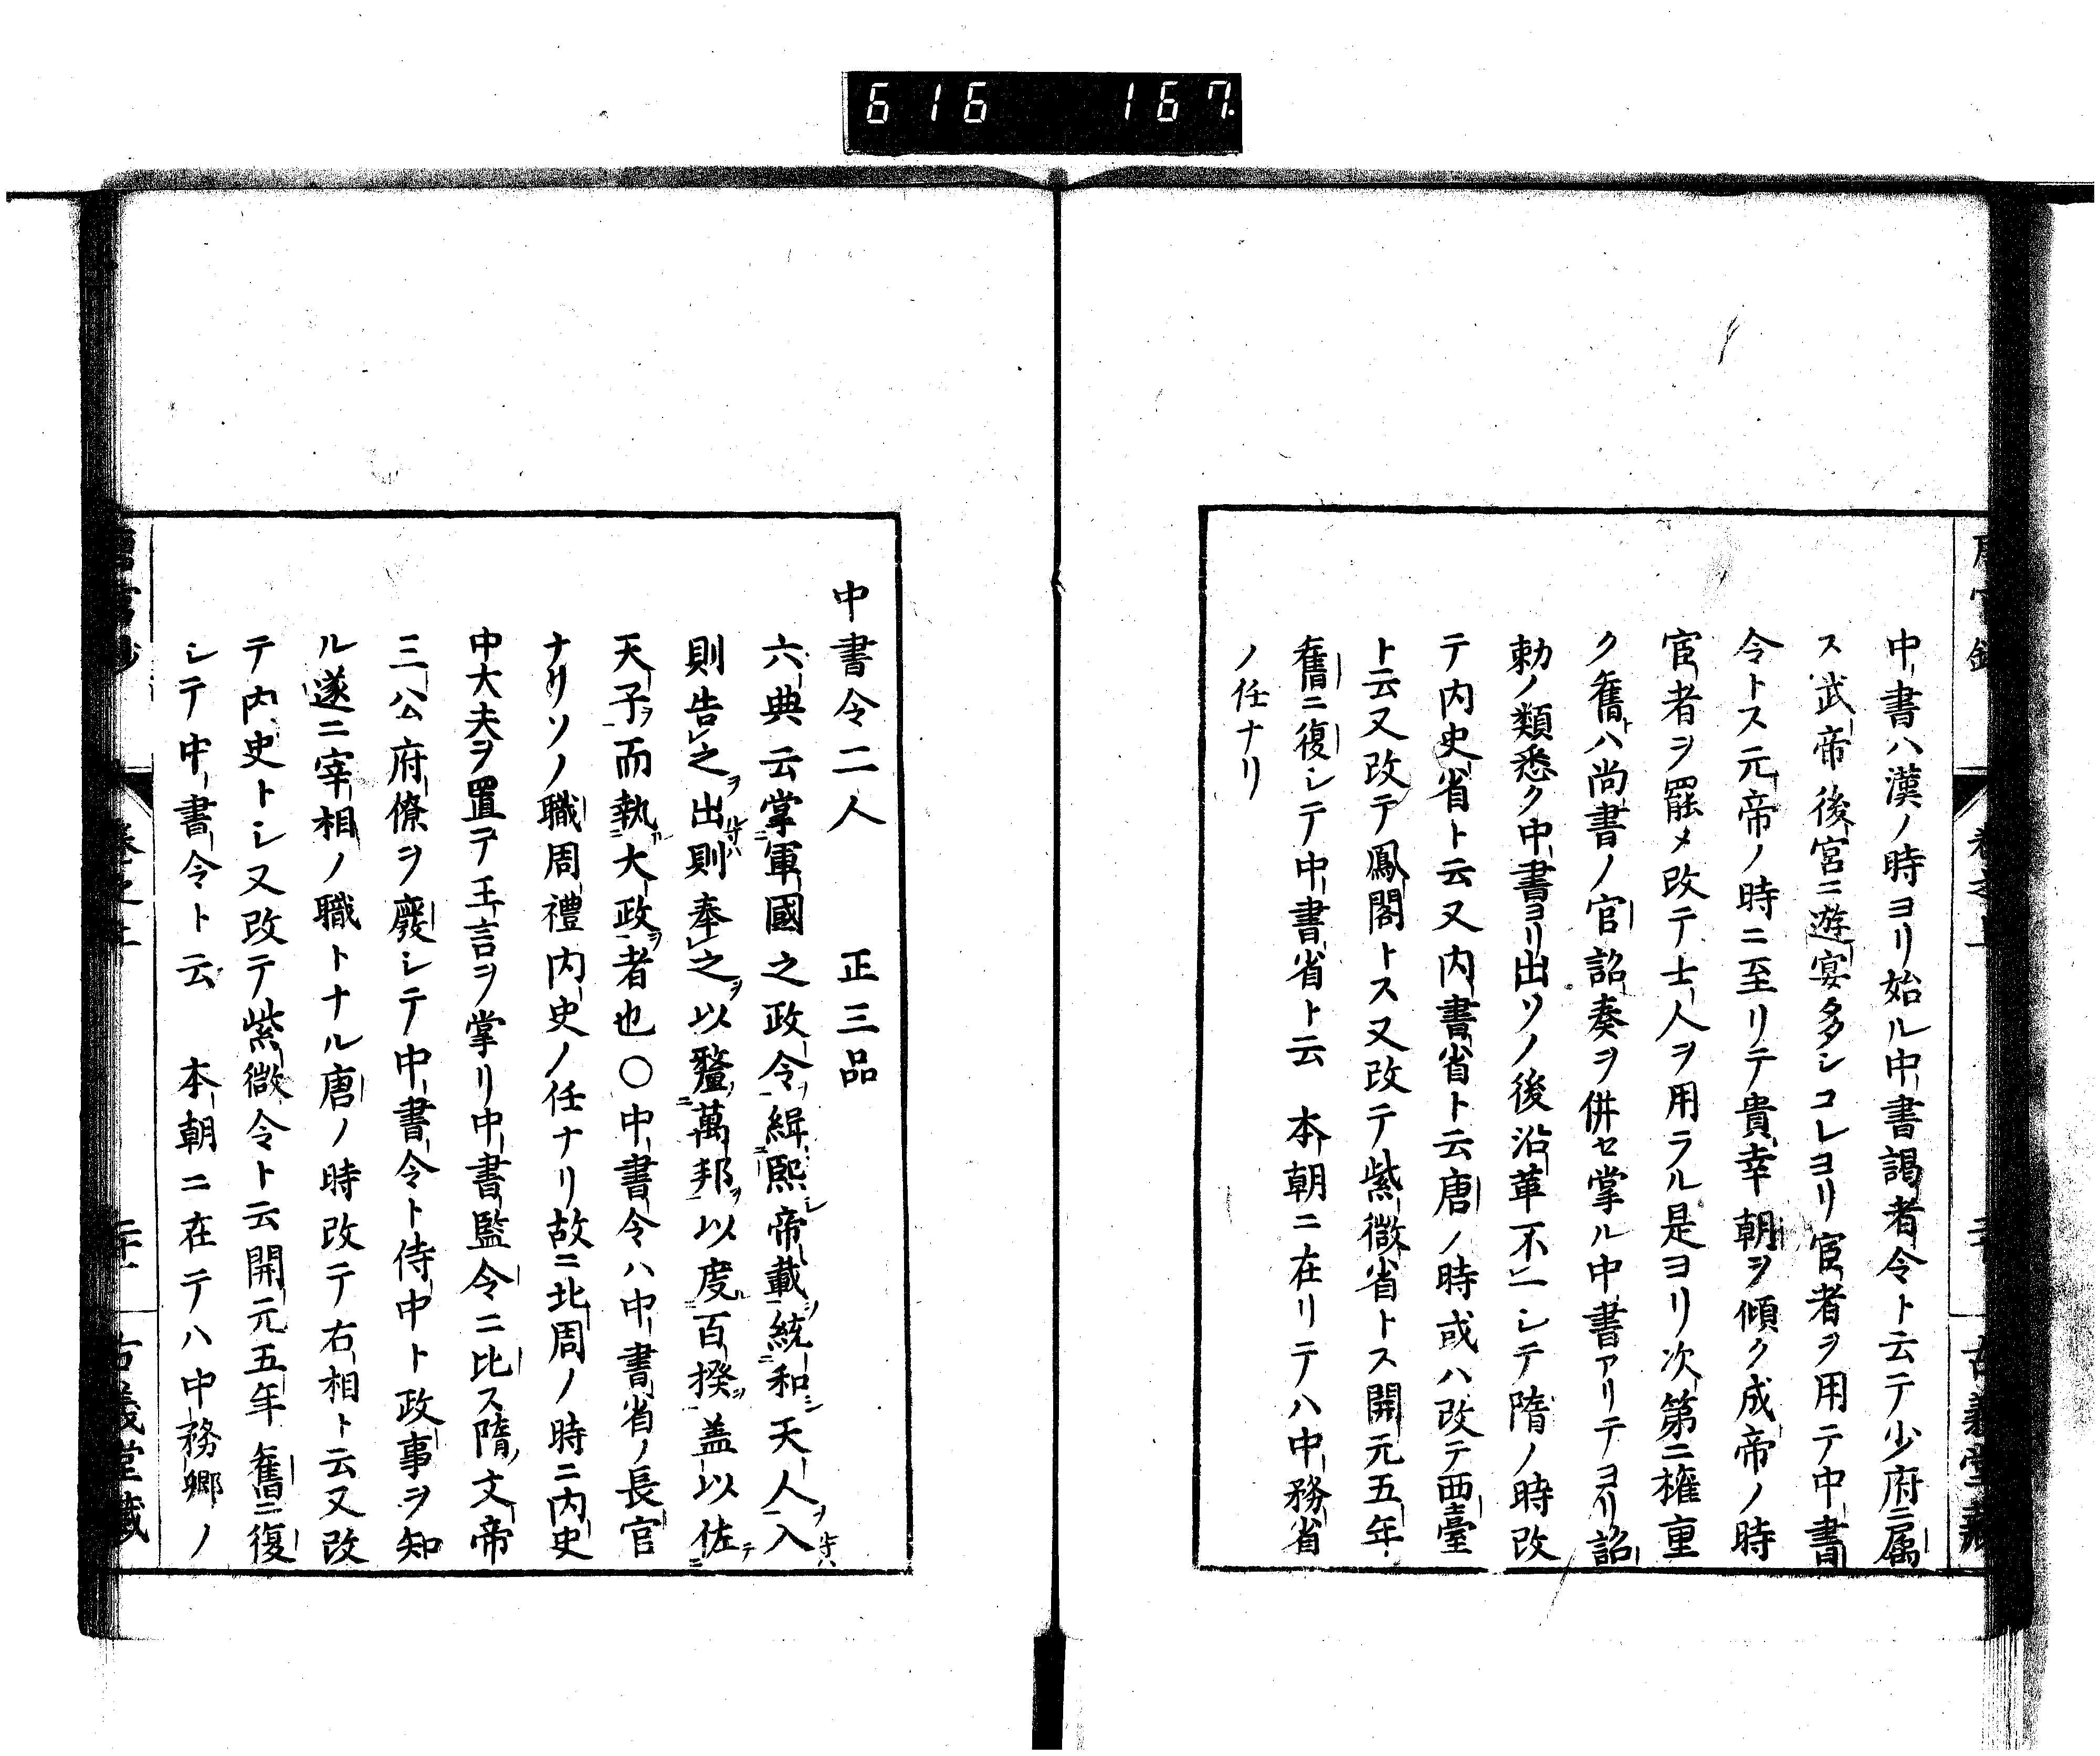 616 167
中書ハ漢ノ時ヨリ始ル中書謁者令ト云テ少府ニ属
ス武帝後宮ニ遊宴多シコレヨリ宦者ヲ用テ中書
令トス元帝ノ時ニ至リテ貴幸朝ヲ傾ク成帝ノ時
宦者ヲ罷メ改テ士人ヲ用ラル是ヨリ次第ニ権重
ク舊ハ尚書ノ官詔奏ヲ併セ掌ル中書アリテヨリ詔
勅ノ類悉ク中書ヨリ出ソノ後沿革不一シテ隋ノ時改
テ内史省ト云又内書省ト云唐ノ時或ハ改テ西臺
ト云又改テ鳳閣トス又改テ紫微省トス開元五年
舊ニ復シテ中書省ト云 本朝ニ在リテハ中務省
ノ任ナリ
中書令二人 正三品
六典云掌軍國之政令緝熙帝載統和天人入
則告之出則奉之以釐萬邦以度百揆盖以佐
天子而執大政者也〇中書令ハ中書省ノ長官
ナリソノ職周禮内史ノ任ナリ故ニ北周ノ時ニ内史
中大夫ヲ置テ王言ヲ掌リ中書監令ニ比ス隋文帝
三公府僚ヲ廢シテ中書令ト侍中ト政事ヲ知
ル遂ニ宰相ノ職トナル唐ノ時改テ右相ト云又改
テ内史トシ又改テ紫微令ト云開元五年舊ニ復
シテ中書令ト云 本朝ニ在テハ中務卿ノ
古義堂藏